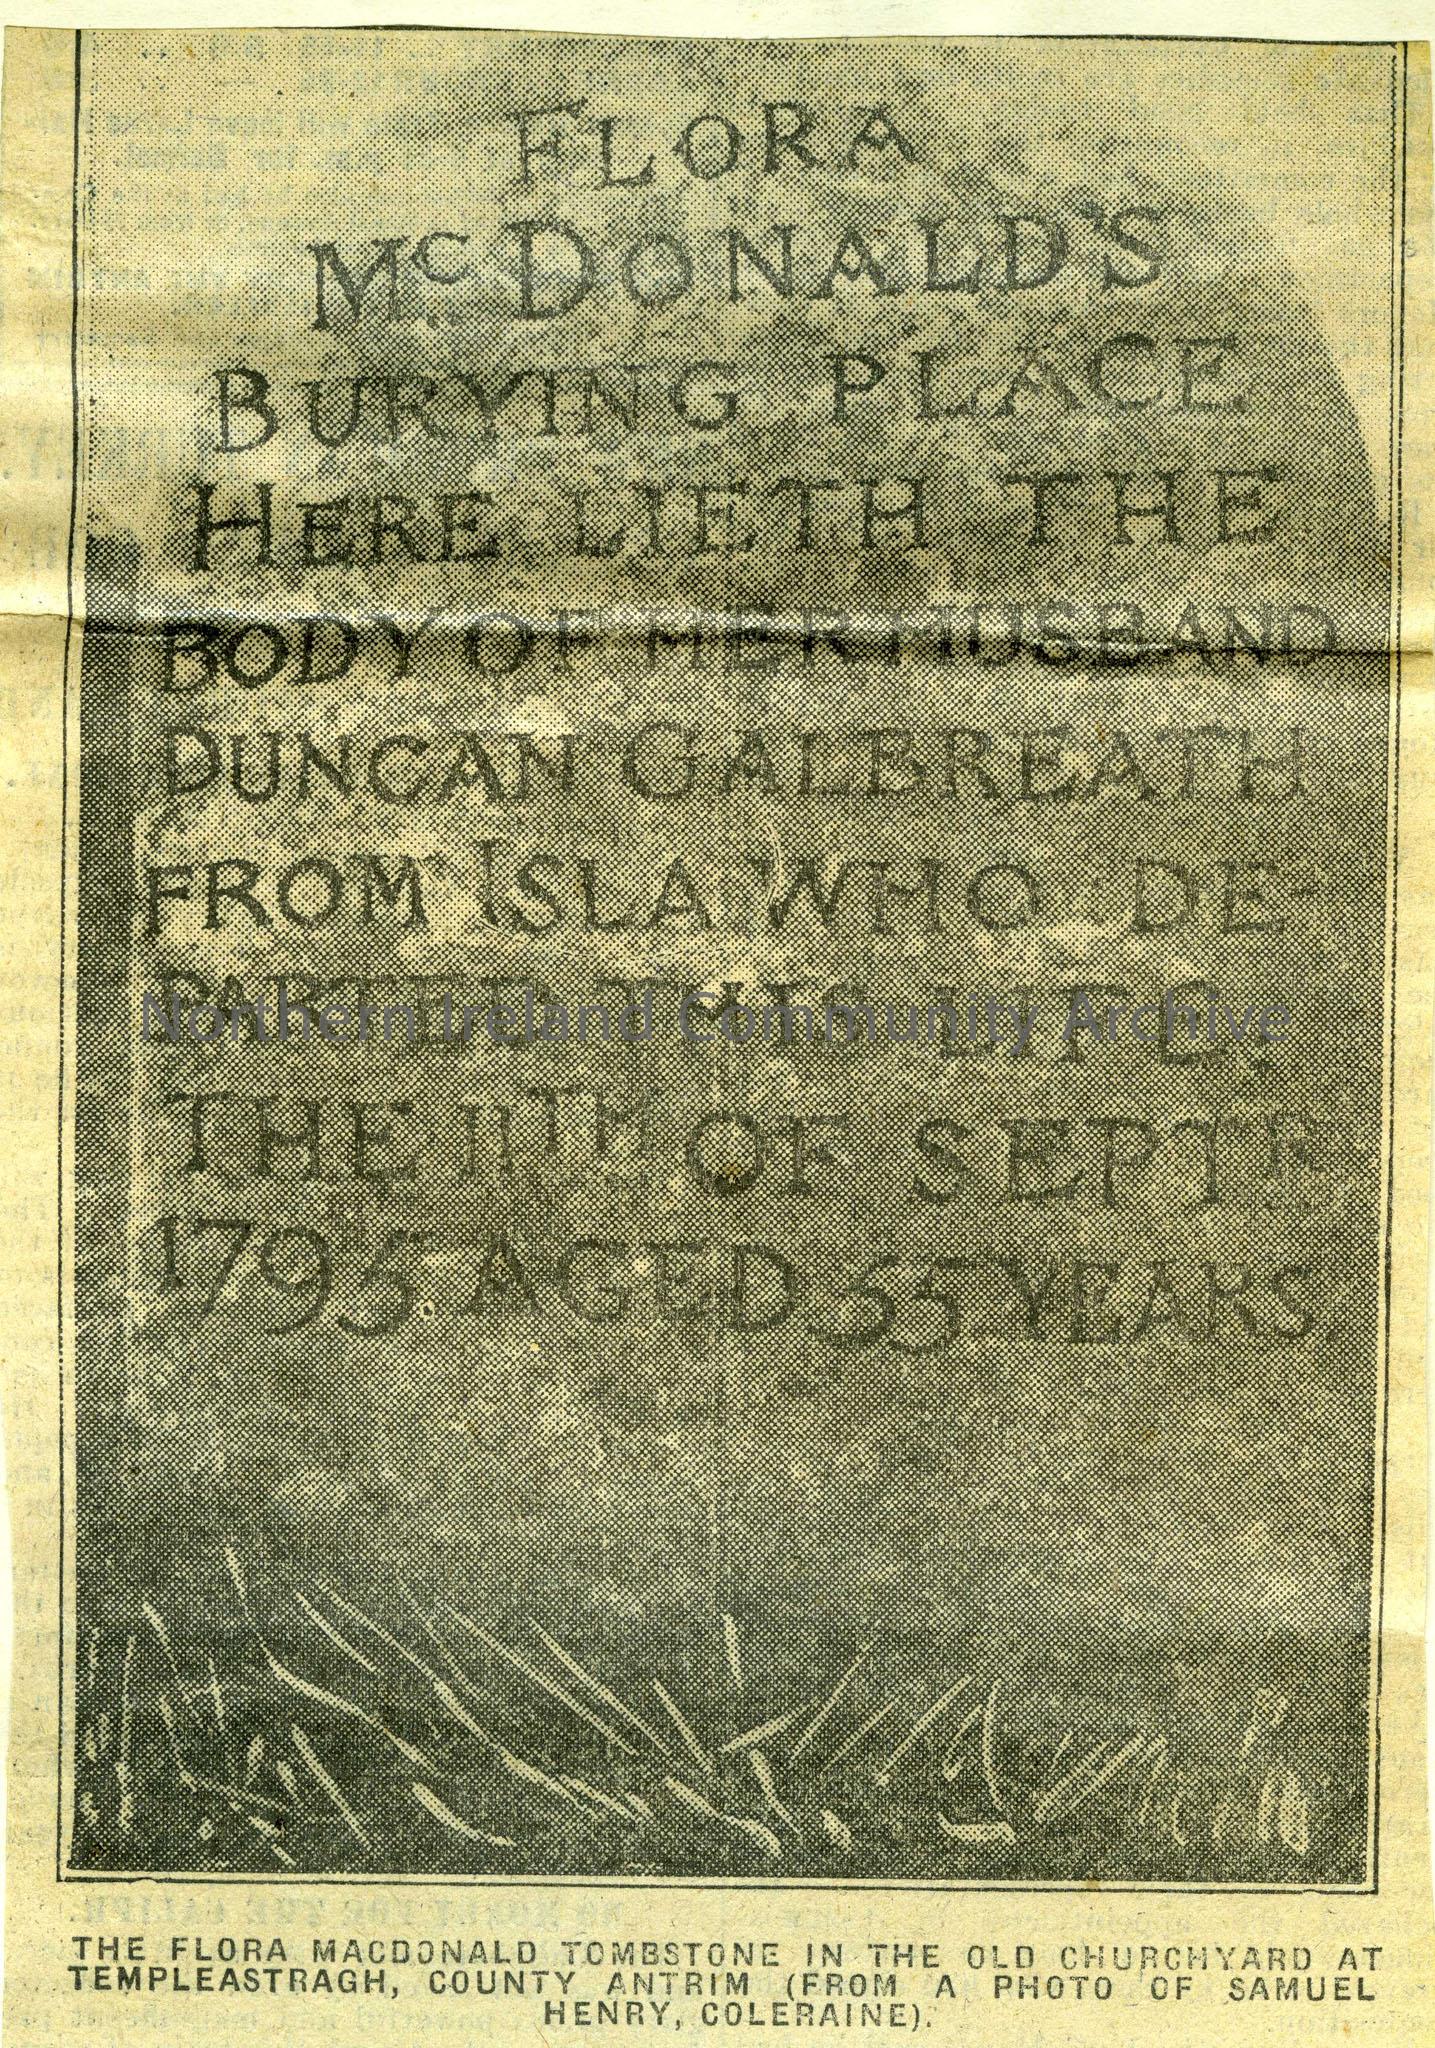 FLORA
McDONALD'S
BURYING PLACE
HERE LIETH THE
BODY OF HER HUSBAND
DUNCAN GALBREATH
FROM ISLA WHO DE-
PARTED THIS LIFE
THE 11TH OF SEPTR
1795 AGED 55 YEARS
Northern Ireland Community Archive
THE FLORA MACDONALD TOMBSTONE IN THE OLD CHURCHYARD AT
TEMPLEASTRAGH, COUNTY ANTRIM (FROM A PHOTO OF SAMUEL
HENRY, COLERAINE).